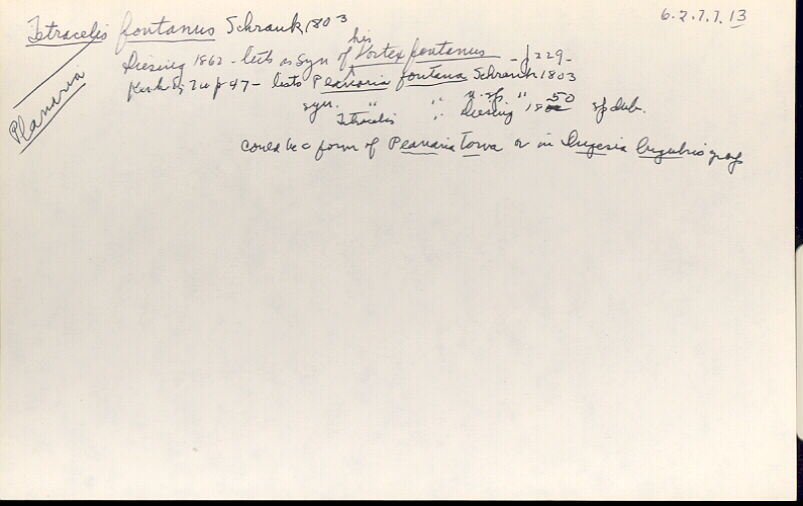 Tetracelis fontanus Schrank, 1803
6.2.7.7.13
Planaria
his
Diesing 1862 - lists as syn of Vortex fontanus - p 229 -
p 47 - lists Planaria fontana Schrank 1803
syn. " " n. sp. "
Tetracelis " Diesing 1850 sp dub.
Could be a form of Planaria torva or in Dugesia lugubris group